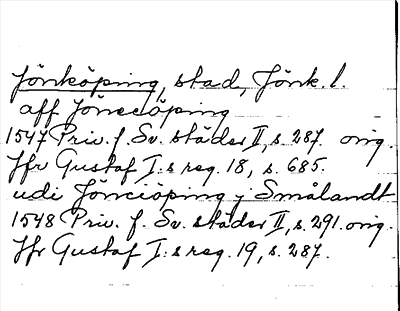 Jönköping, stad, Jönk. l.
aff Jönecöping
1547 Priv. f. Sv. städer II, s. 287. orig.
Jfr Gustaf I:s reg. 18, s. 685.
udi Jönciöping y Smålandt
1548 Priv. f. Sv. städer II, s. 291. orig.
Jfr Gustaf I:s reg. 19, s. 287.